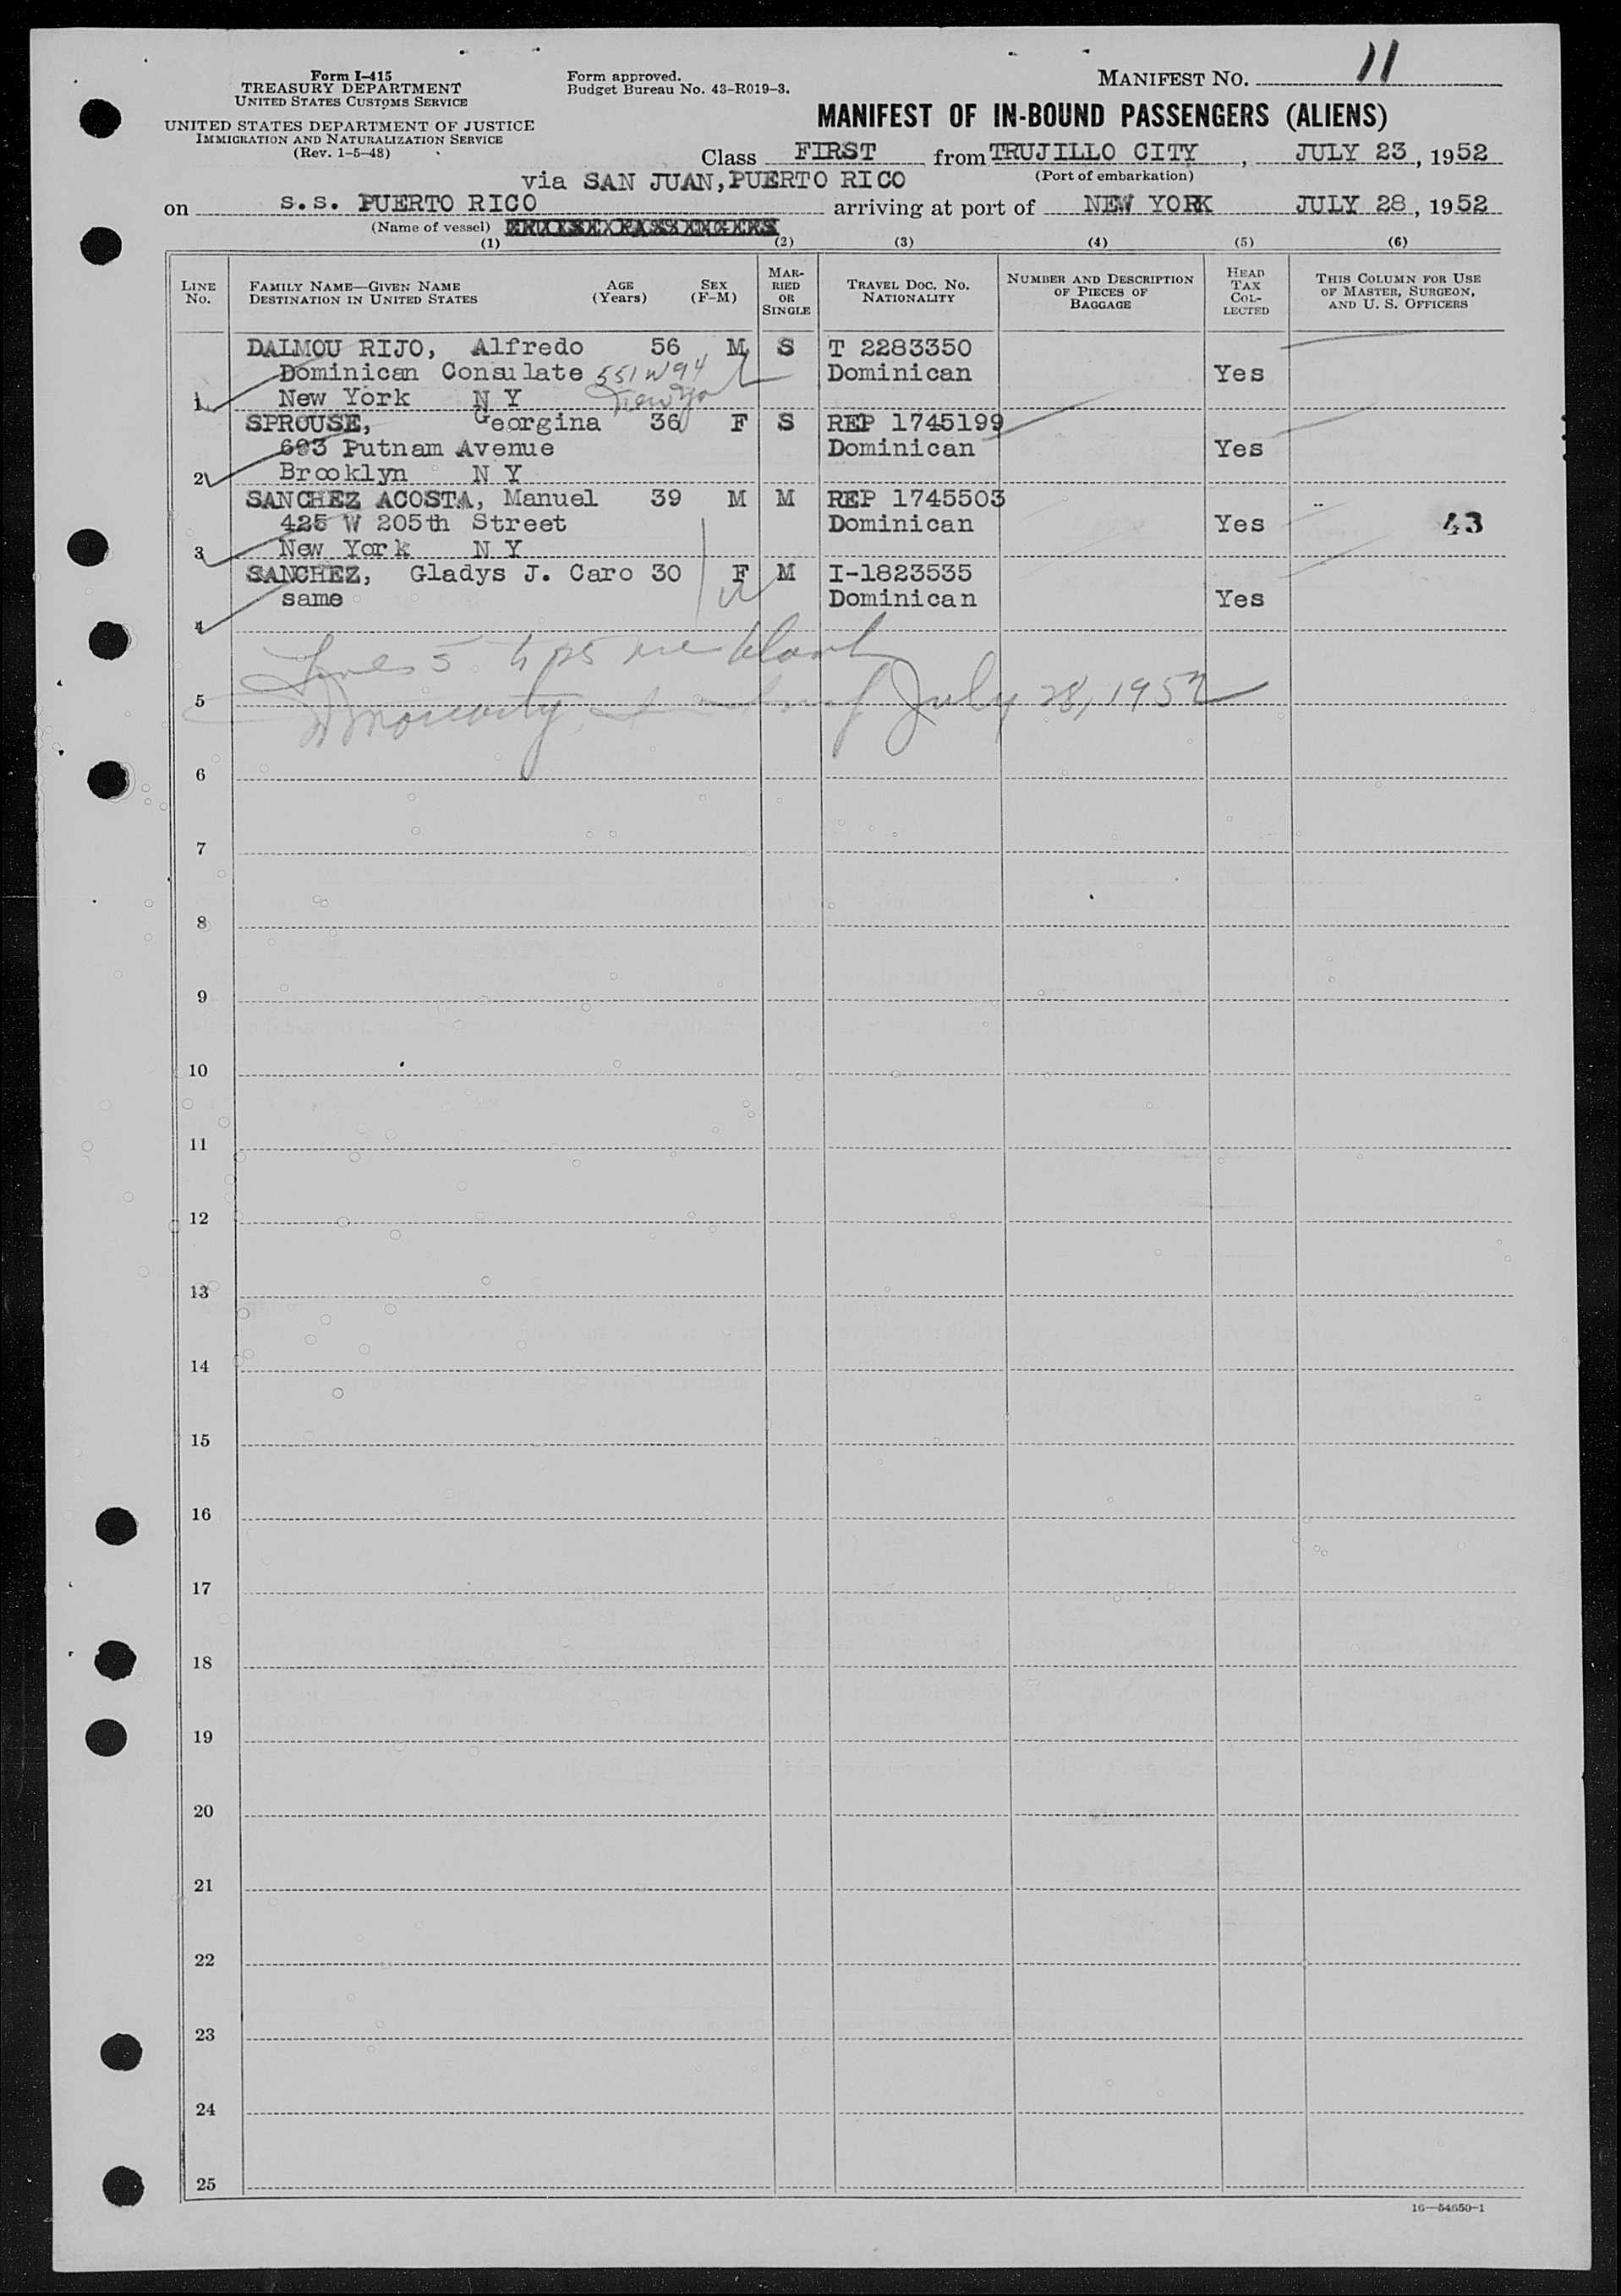 Form I-415
TREASURY DEPARTMENT
UNITED STATES CUSTOMS SERVICE
UNITED STATES DEPARTMENT OF JUSTICE
IMMIGRATION AND NATURALIZATION SERVICE
(Rev. 1-5-48)
Form approved.
Budget Bureau No. 43-R019-3.
MANIFEST NO. 11
MANIFEST OF IN-BOUND PASSENGERS (ALIENS)
Class FIRST from TRUJILLO CITY, JULY 23, 1952
via SAN JUAN, PUERTO RICO (Port of embarkation)
on s.s. PUERTO RICO arriving at port of NEW YORK JULY 28, 1952
(Name of vessel)
(1) (2) (3) (4) (5) (6)
LINE No. FAMILY NAME—GIVEN NAME DESTINATION IN UNITED STATES AGE (Years) SEX (F-M) MARRIED OR SINGLE TRAVEL DOC. NO. NATIONALITY NUMBER AND DESCRIPTION OF PIECES OF BAGGAGE HEAD TAX COLLECTED THIS COLUMN FOR USE OF MASTER, SURGEON, AND U. S. OFFICERS
DALMOU RIJO, Alfredo 56 M S T 2283350
Dominican Consulate 551 W 94 Dominican Yes
1 New York N Y New York
SPROUSE, Georgina 36 F S REP 1745199
693 Putnam Avenue Dominican Yes
2 Brooklyn N Y
SANCHEZ ACOSTA, Manuel 39 M M REP 1745503
425 W 205th Street Dominican Yes 43
3 New York N Y
SANCHEZ, Gladys J. Caro 30 F M I-1823535
same Dominican Yes
4
Lines 5 to 25 are blank
5 July 28, 1952
6
7
8
9
10
11
12
13
14
15
16
17
18
19
20
21
22
23
24
25
16—54650-1